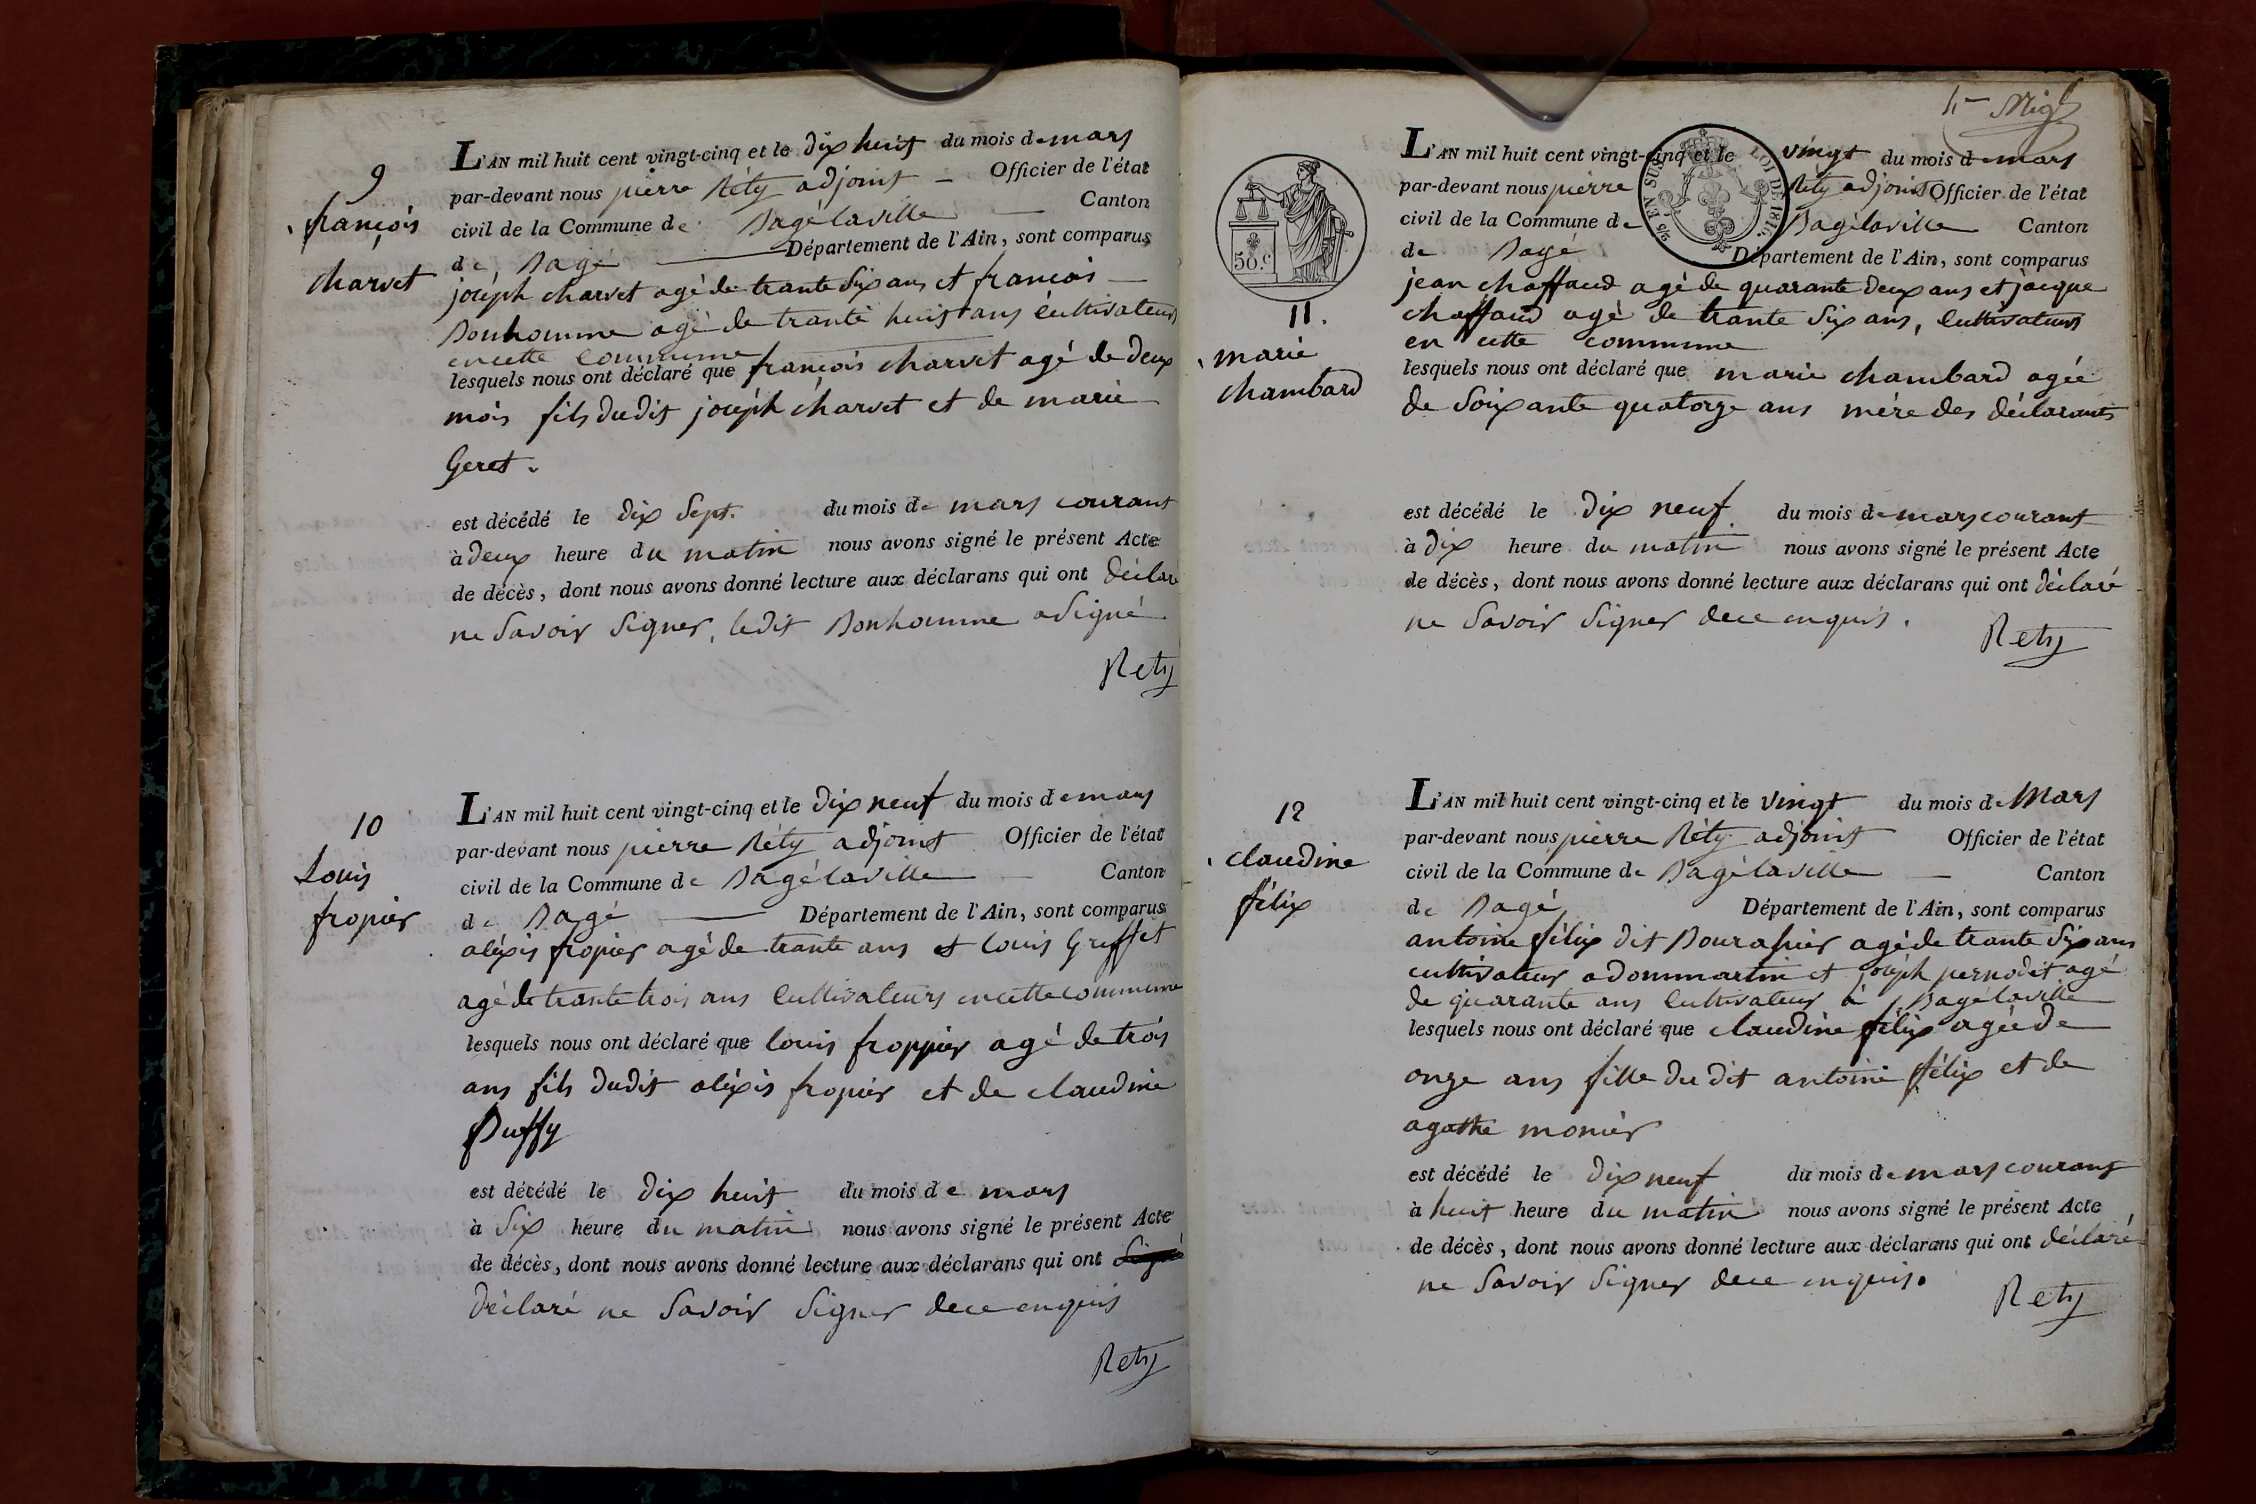 9
françois
charvet
L'AN mil huit cent vingt-cinq et le dix huit du mois de mars
par-devant nous pierre Réty adjoint Officier de l'état
civil de la Commune de Bagélaville Canton
de Bagé Département de l'Ain, sont comparus
joséph charvet agé de trante Six ans et françois
Bonhomme agé de trante huit ans cultivateurs
en cette commune
lesquels nous ont déclaré que françois charvet agé de deux
mois fils dudit joséph charvet et de marie
Geret.
est décédé le dix Sept. du mois de mars courant
à deux heure du matin nous avons signé le présent Acte
de décès, dont nous avons donné lecture aux déclarans qui ont déclaré
ne Savoir Signer, ledit Bonhomme a Signé
Rety
10
Louis
fropier
L'AN mil huit cent vingt-cinq et le dix neuf du mois de mars
par-devant nous pierre Réty adjoint Officier de l'état
civil de la Commune de Bagélaville Canton
de Bagé Département de l'Ain, sont comparus
aléxis fropier agé de trante ans et Louis Greffet
agé de trante trois ans cultivateurs en cette commune
lesquels nous ont déclaré que louis froppier agé de trois
ans fils dudit aléxis fropier et de claudine
Buffy
est décédé le dix huit du mois de mars
à Six heure du matin nous avons signé le présent Acte
de décès, dont nous avons donné lecture aux déclarans qui ont Signé
déclaré ne Savoir Signer de ce enquis
Rety
50.c
EN SUS
LOI DE 1816.
11.
marie
chambard
L'AN mil huit cent vingt-cinq et le vingt du mois de mars
par-devant nous pierre Réty adjoint Officier de l'état
civil de la Commune de Bagélaville Canton
de Bagé Département de l'Ain, sont comparus
jean chaffaud agé de quarante deux ans et jacque
chaffaud agé de trante Six ans, cultivateurs
en cette commune
lesquels nous ont déclaré que marie chambard agée
de Soixante quatorze ans mére des déclarants
est décédé le dix neuf du mois de mars courant
à dix heure du matin nous avons signé le présent Acte
de décès, dont nous avons donné lecture aux déclarans qui ont déclaré
ne Savoir Signer de ce enquis.
Rety
12
claudine
félix
L'AN mil huit cent vingt-cinq et le vingt du mois de Mars
par-devant nous pierre Réty adjoint Officier de l'état
civil de la Commune de Bagélaville Canton
de Bagé Département de l'Ain, sont comparus
antoine félix dit agé de trante Six ans
cultivateur a dommartin et joséph pernodit agé
de quarante ans cultivateur à Bagélaville
lesquels nous ont déclaré que claudine félix agée de
onze ans fille du dit antoine félix et de
agathe monier
est décédé le dix neuf du mois de mars courant
à huit heure du matin nous avons signé le présent Acte
de décès, dont nous avons donné lecture aux déclarans qui ont déclaré
ne Savoir Signer de ce enquis.
Rety